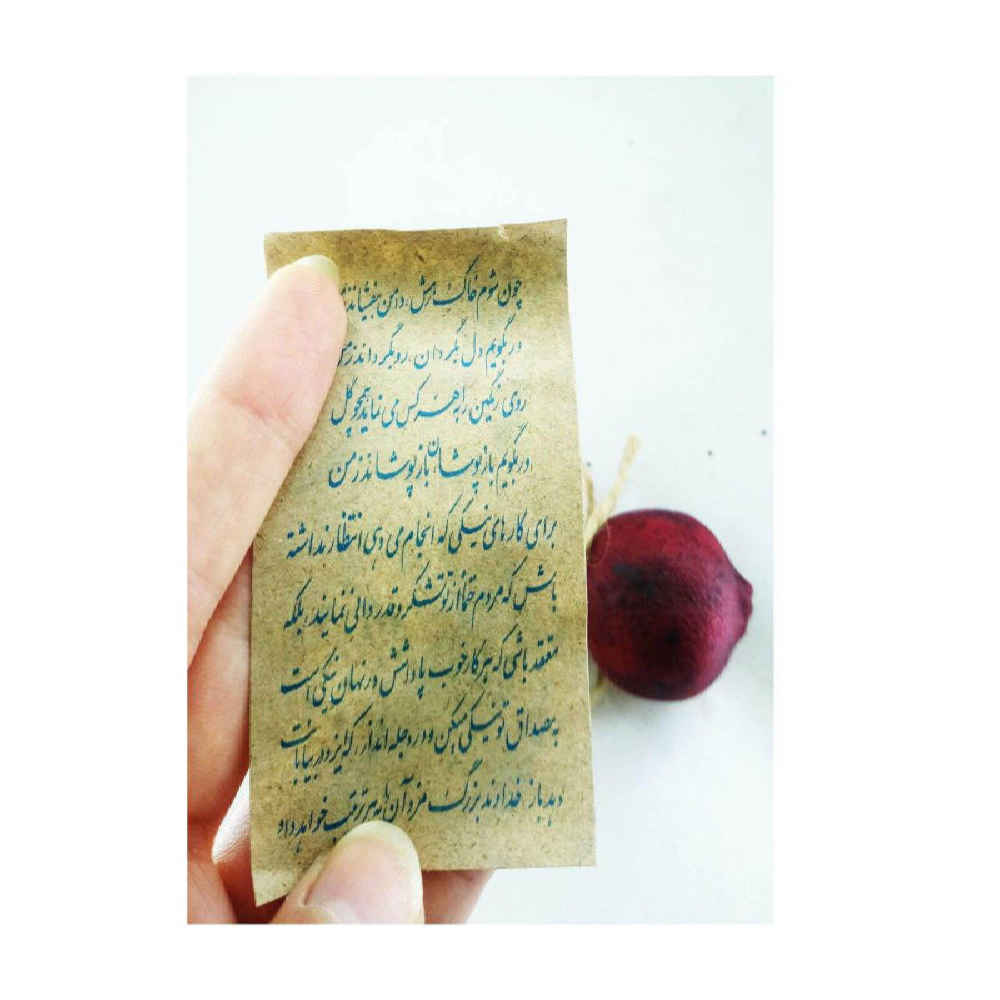 چون شوم خاک رهش، دامن بیفشاند ز
ور بگویم دل بگردان، رو بگرداند ز من
روی رنگین را به هر کس می نماید همچو گل
ور بگویم باز پوشان باز پوشاند ز من
برای کارهای نیکی که انجام می دهی انتظار نداشته
باش که مردم حتما از تو تشکر و قدردانی نمایند، بلکه
معتقد باشی که هر کار خوب پاداشش در نهان نیکی است
به مصداق تو نیکی میکن و در دجله انداز که ایزد در بیابانت
دهد باز خداوند بزرگ مزد آن را به مرتب خواهد داد